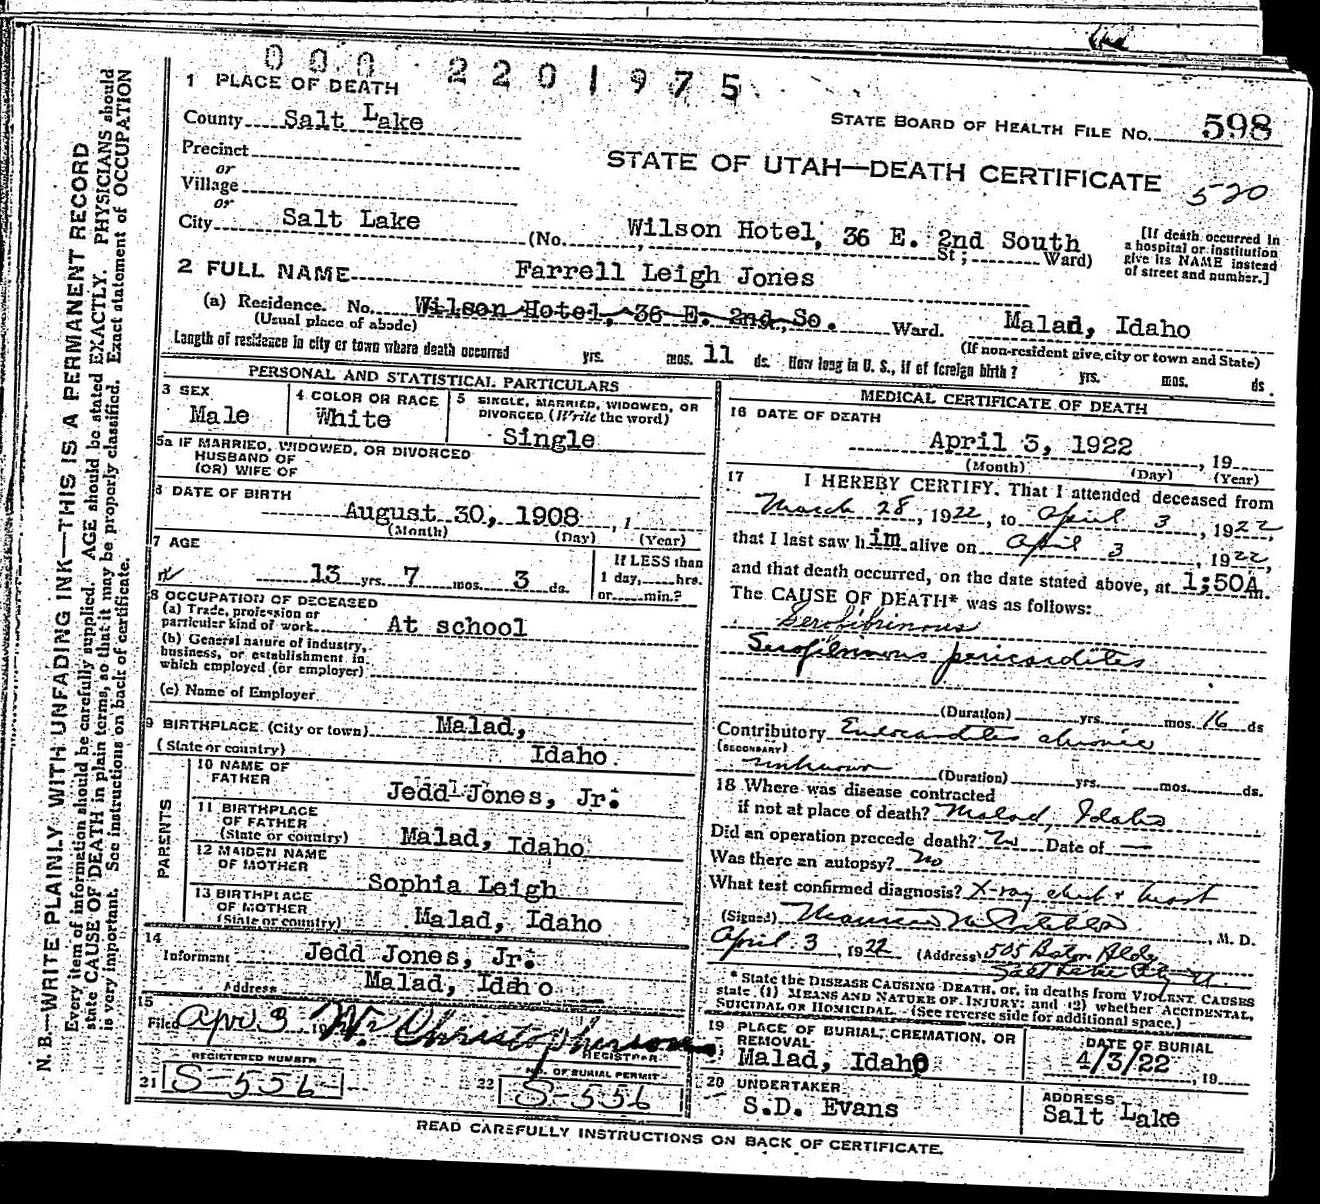 000 2201975
1 PLACE OF DEATH
County Salt Lake
STATE BOARD OF HEALTH FILE NO. 598
Precinct
or
Village
or
STATE OF UTAH—DEATH CERTIFICATE 520
City Salt Lake (No. Wilson Hotel, 36 E. 2nd South St; Ward)
[If death occurred in
a hospital or institution
give its NAME instead
of street and number.]
2 FULL NAME Farrell Leigh Jones
(a) Residence. No. Wilson Hotel, 36 E. 2nd So. Ward. Malad, Idaho
(Usual place of abode) (If non-resident give city or town and State)
Length of residence in city or town where death occurred yrs. mos. 11 ds. How long in U. S., if of foreign birth? yrs. mos. ds.
PERSONAL AND STATISTICAL PARTICULARS
3 SEX
Male
4 COLOR OR RACE
White
5 SINGLE, MARRIED, WIDOWED, OR
DIVORCED (Write the word)
Single
5a IF MARRIED, WIDOWED, OR DIVORCED
HUSBAND OF
(OR) WIFE OF
6 DATE OF BIRTH
August 30, 1908, 1
(Month) (Day) (Year)
7 AGE
13 yrs. 7 mos. 3 ds.
If LESS than
1 day, hrs.
or min.?
8 OCCUPATION OF DECEASED
(a) Trade, profession or
particular kind of work At school
(b) General nature of industry,
business, or establishment in
which employed (or employer)
(c) Name of Employer
9 BIRTHPLACE (City or town) Malad,
(State or country) Idaho.
PARENTS
10 NAME OF
FATHER Jedd Jones, Jr.
11 BIRTHPLACE
OF FATHER
(State or country) Malad, Idaho
12 MAIDEN NAME
OF MOTHER
Sophia Leigh
13 BIRTHPLACE
OF MOTHER
(State or country) Malad, Idaho
14
Informant Jedd Jones, Jr.
Address Malad, Idaho
15
Filed Apr 3 19 W. Christopherson
REGISTRAR
REGISTERED NUMBER
21 S-556
NO. OF BURIAL PERMIT
22 S-556
MEDICAL CERTIFICATE OF DEATH
16 DATE OF DEATH
April 3, 1922, 19
(Month) (Day) (Year)
17 I HEREBY CERTIFY. That I attended deceased from
March 28, 1922, to April 3, 1922,
that I last saw him alive on April 3, 1922,
and that death occurred, on the date stated above, at 1;50A m.
The CAUSE OF DEATH* was as follows:
Serofibrinous
Serofibrinous pericarditis
(Duration) yrs. mos. 16 ds
Contributory Endocarditis chronic
(SECONDARY)
unknown (Duration) yrs. mos. ds.
18 Where was disease contracted
if not at place of death? Malad, Idaho
Did an operation precede death? No Date of —
Was there an autopsy? No
What test confirmed diagnosis? X-ray chest + heart
(Signed) , M. D.
April 3, 1922 (Address) 505 Boston Bldg
Salt Lake City U.
* State the DISEASE CAUSING DEATH, or, in deaths from VIOLENT CAUSES
state (1) MEANS AND NATURE OF INJURY; and (2) whether ACCIDENTAL,
SUICIDAL OR HOMICIDAL. (See reverse side for additional space.)
19 PLACE OF BURIAL, CREMATION, OR
REMOVAL
Malad, Idaho
DATE OF BURIAL
4/3/22, 19
20 UNDERTAKER
S.D. Evans
ADDRESS
Salt Lake
READ CAREFULLY INSTRUCTIONS ON BACK OF CERTIFICATE.
N. B.—WRITE PLAINLY WITH UNFADING INK—THIS IS A PERMANENT RECORD
Every item of information should be carefully supplied. AGE should be stated EXACTLY. PHYSICIANS should
state CAUSE OF DEATH in plain terms, so that it may be properly classified. Exact statement of OCCUPATION
is very important. See instructions on back of certificate.